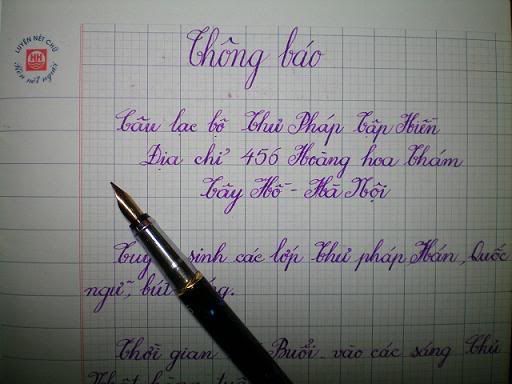 LUYỆN NÉT CHỮ
HH
Rèn nết người
Thông báo
Câu lạc bộ Thư Pháp Tập Hiền
Địa chỉ 456 Hoàng hoa Thám
Tây Hồ - Hà Nội
sinh các lớp Thư pháp Hán, Quốc
ngữ, bút
Thời gian Buổi vào các sáng Thứ